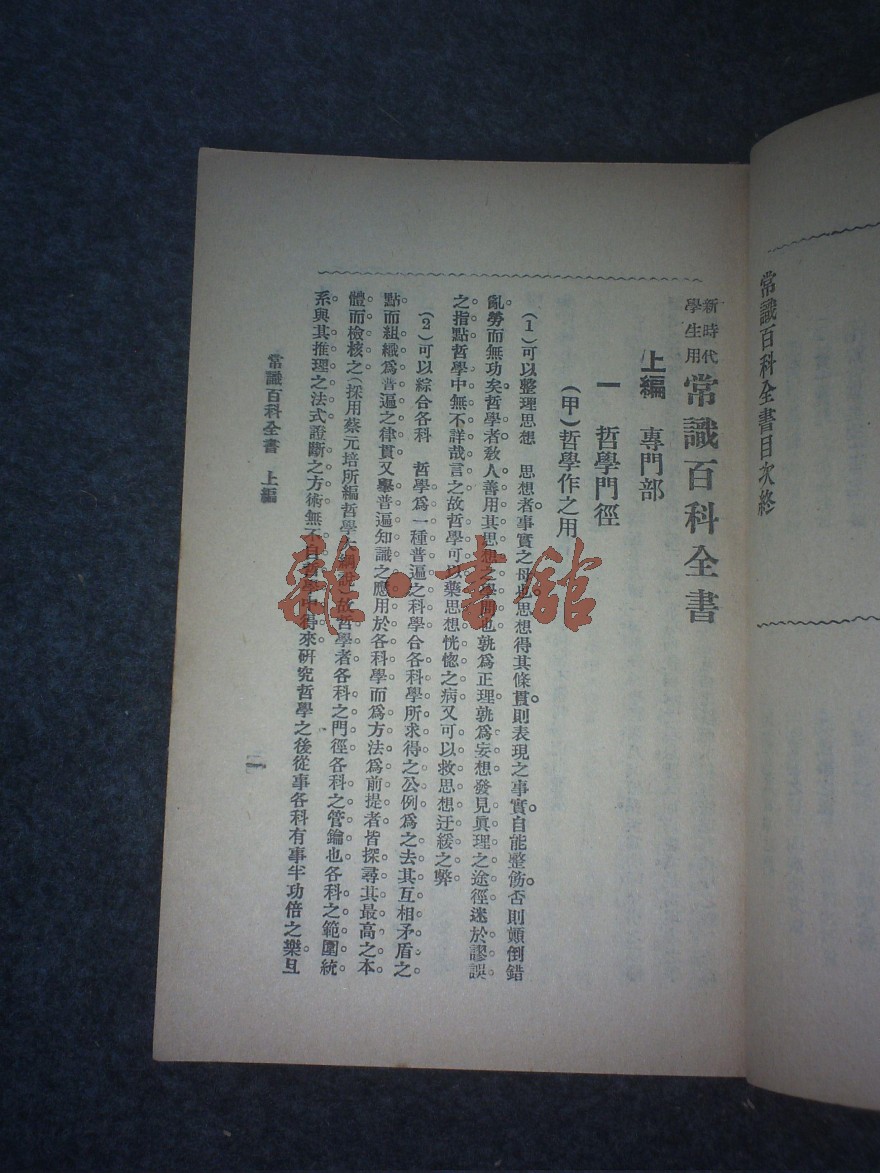 常識百科全書目次終
新時代
學生用
常識百科全書
上編　專門部
一　哲學門徑
(甲)哲學作之用
(1)可以整理思想　思想者事實之母也思想得其條貫則表現之事實自能整飭否則顚倒錯
亂勞而無功矣哲學者敎人善用其思想之學問也孰爲正理孰爲妄想發見眞理之途徑迷於謬誤
之指點哲學中無不詳哉言之故哲學可以藥思想恍惚之病又可以救思想迂緩之弊
(2)可以綜合各科　哲學爲一種普遍之科學合各科學所求得之公例爲之去其互相矛盾之
點而組織爲普遍之律貫又舉普遍知識之應用於各科學而爲方法爲前提者皆探尋其最高之本
體而檢核之(採用蔡元培所編哲學大綱說)故哲學者各科之門徑各科之管鑰也各科之範圍統
系與其推理之法式證斷之方術無不自哲學中得來硏究哲學之後從事各科有事半功倍之樂且
常識百科全書　上編
一
雜·書館